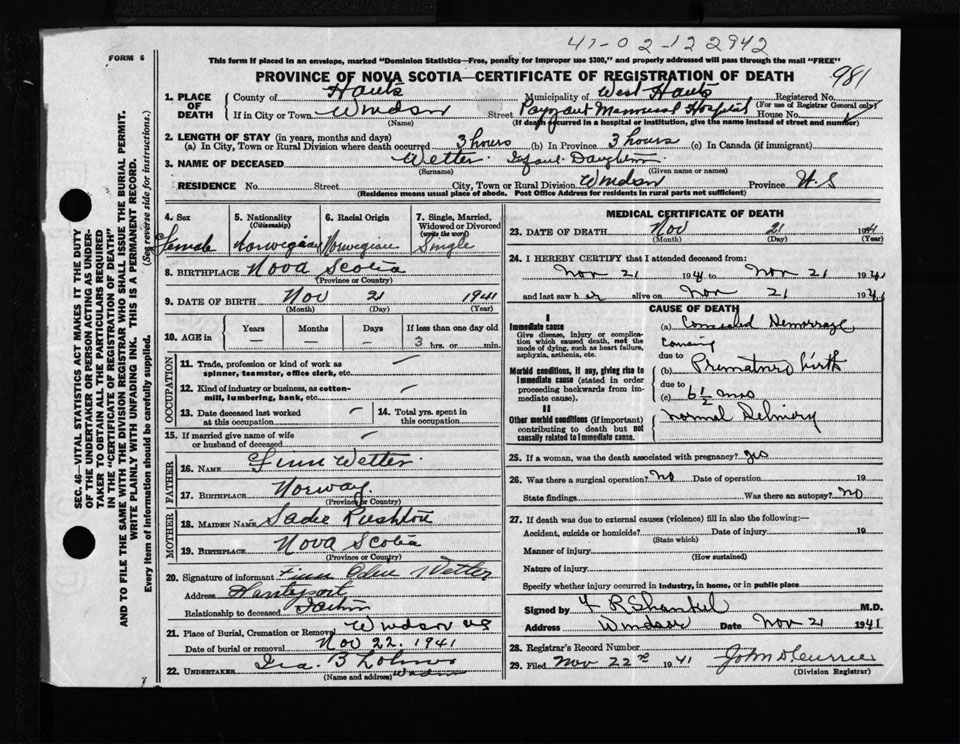 47-02-12 2942
FORM 6
This form if placed in an envelope, marked "Dominion Statistics—Free, penalty for improper use $300," and properly addressed will pass through the mail "FREE"
PROVINCE OF NOVA SCOTIA—CERTIFICATE OF REGISTRATION OF DEATH
981
1. PLACE OF DEATH County of Hants Municipality of West Hants Registered No.
(For use of Registrar General only)
If in City or Town Windsor Street Payzant Memorial Hospital House No.
(Name) (If death occurred in a hospital or institution, give the name instead of street and number)
2. LENGTH OF STAY (in years, months and days)
(a) In City, Town or Rural Division where death occurred 3 hours (b) In Province 3 hours (c) In Canada (if immigrant)
3. NAME OF DECEASED Wetter Infant Daughter
(Surname) (Given name or names)
RESIDENCE No. Street City, Town or Rural Division Windsor Province N.S
(Residence means usual place of abode. Post Office Address for residents in rural parts not sufficient)
SEC. 46—VITAL STATISTICS ACT MAKES IT THE DUTY
OF THE UNDERTAKER OR PERSON ACTING AS UNDER-
TAKER TO OBTAIN ALL THE PARTICULARS REQUIRED
IN THE "CERTIFICATE OF REGISTRATION OF DEATH"
AND TO FILE THE SAME WITH THE DIVISION REGISTRAR WHO SHALL ISSUE THE BURIAL PERMIT.
WRITE PLAINLY WITH UNFADING INK. THIS IS A PERMANENT RECORD.
Every item of information should be carefully supplied. (See reverse side for instructions.)
4. Sex Female
5. Nationality (Citizenship) Norwegian
6. Racial Origin Norwegian
7. Single, Married, Widowed or Divorced (write the word) Single
8. BIRTHPLACE Nova Scotia
(Province or Country)
9. DATE OF BIRTH Nov 21 1941
(Month) (Day) (Year)
10. AGE in Years — Months — Days — If less than one day old 3 hrs. or min.
OCCUPATION
11. Trade, profession or kind of work as spinner, teamster, office clerk, etc.
12. Kind of industry or business, as cotton-mill, lumbering, bank, etc.
13. Date deceased last worked at this occupation
14. Total yrs. spent in this occupation
15. If married give name of wife or husband of deceased
FATHER
16. NAME Finn Wetter
17. BIRTHPLACE Norway
(Province or Country)
MOTHER
18. MAIDEN NAME Sadie Rushton
19. BIRTHPLACE Nova Scotia
(Province or Country)
20. Signature of informant Finn Wetter
Address Hantsport
Relationship to deceased
21. Place of Burial, Cremation or Removal Windsor NS
Date of burial or removal Nov 22. 1941
22. UNDERTAKER Ira. B
(Name and address) Windsor
MEDICAL CERTIFICATE OF DEATH
23. DATE OF DEATH Nov 21 1941
(Month) (Day) (Year)
24. I HEREBY CERTIFY that I attended deceased from:
Nov 21 1941 to Nov 21 1941
and last saw her alive on Nov 21 1941
CAUSE OF DEATH
I
Immediate cause
Give disease, injury or complication which caused death, not the mode of dying, such as heart failure, asphyxia, asthenia, etc.
(a) Concealed Hemorrage
causing
due to
Morbid conditions, if any, giving rise to immediate cause (stated in order proceeding backwards from immediate cause)
(b) Premature birth
due to
(c) 6½ mos
II
Other morbid conditions (if important) contributing to death but not causally related to immediate cause.
Normal Delivery
25. If a woman, was the death associated with pregnancy? yes
26. Was there a surgical operation? No Date of operation 19
State findings Was there an autopsy? No
27. If death was due to external causes (violence) fill in also the following:—
Accident, suicide or homicide? Date of injury 19
(State which)
Manner of injury
(How sustained)
Nature of injury
Specify whether injury occurred in industry, in home, or in public place
Signed by M.D.
Address Windsor Date Nov 21 1941
28. Registrar's Record Number
29. Filed Nov 22nd 1941 John D Currie
(Division Registrar)